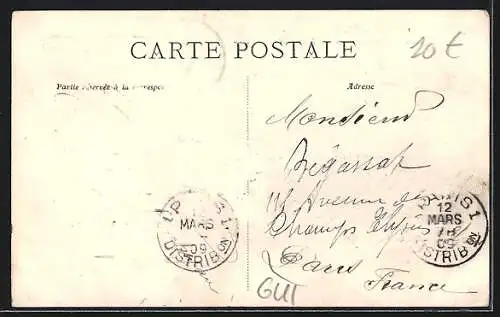 CARTE POSTALE
20€
Partie réservée à la correspo
Adresse
Monsieur
Avenue des
Champs Elysées
Paris
France
MARS
09
DISTRIB ON
PARIS 1
12
MARS
09
DISTRIB ON
GUI